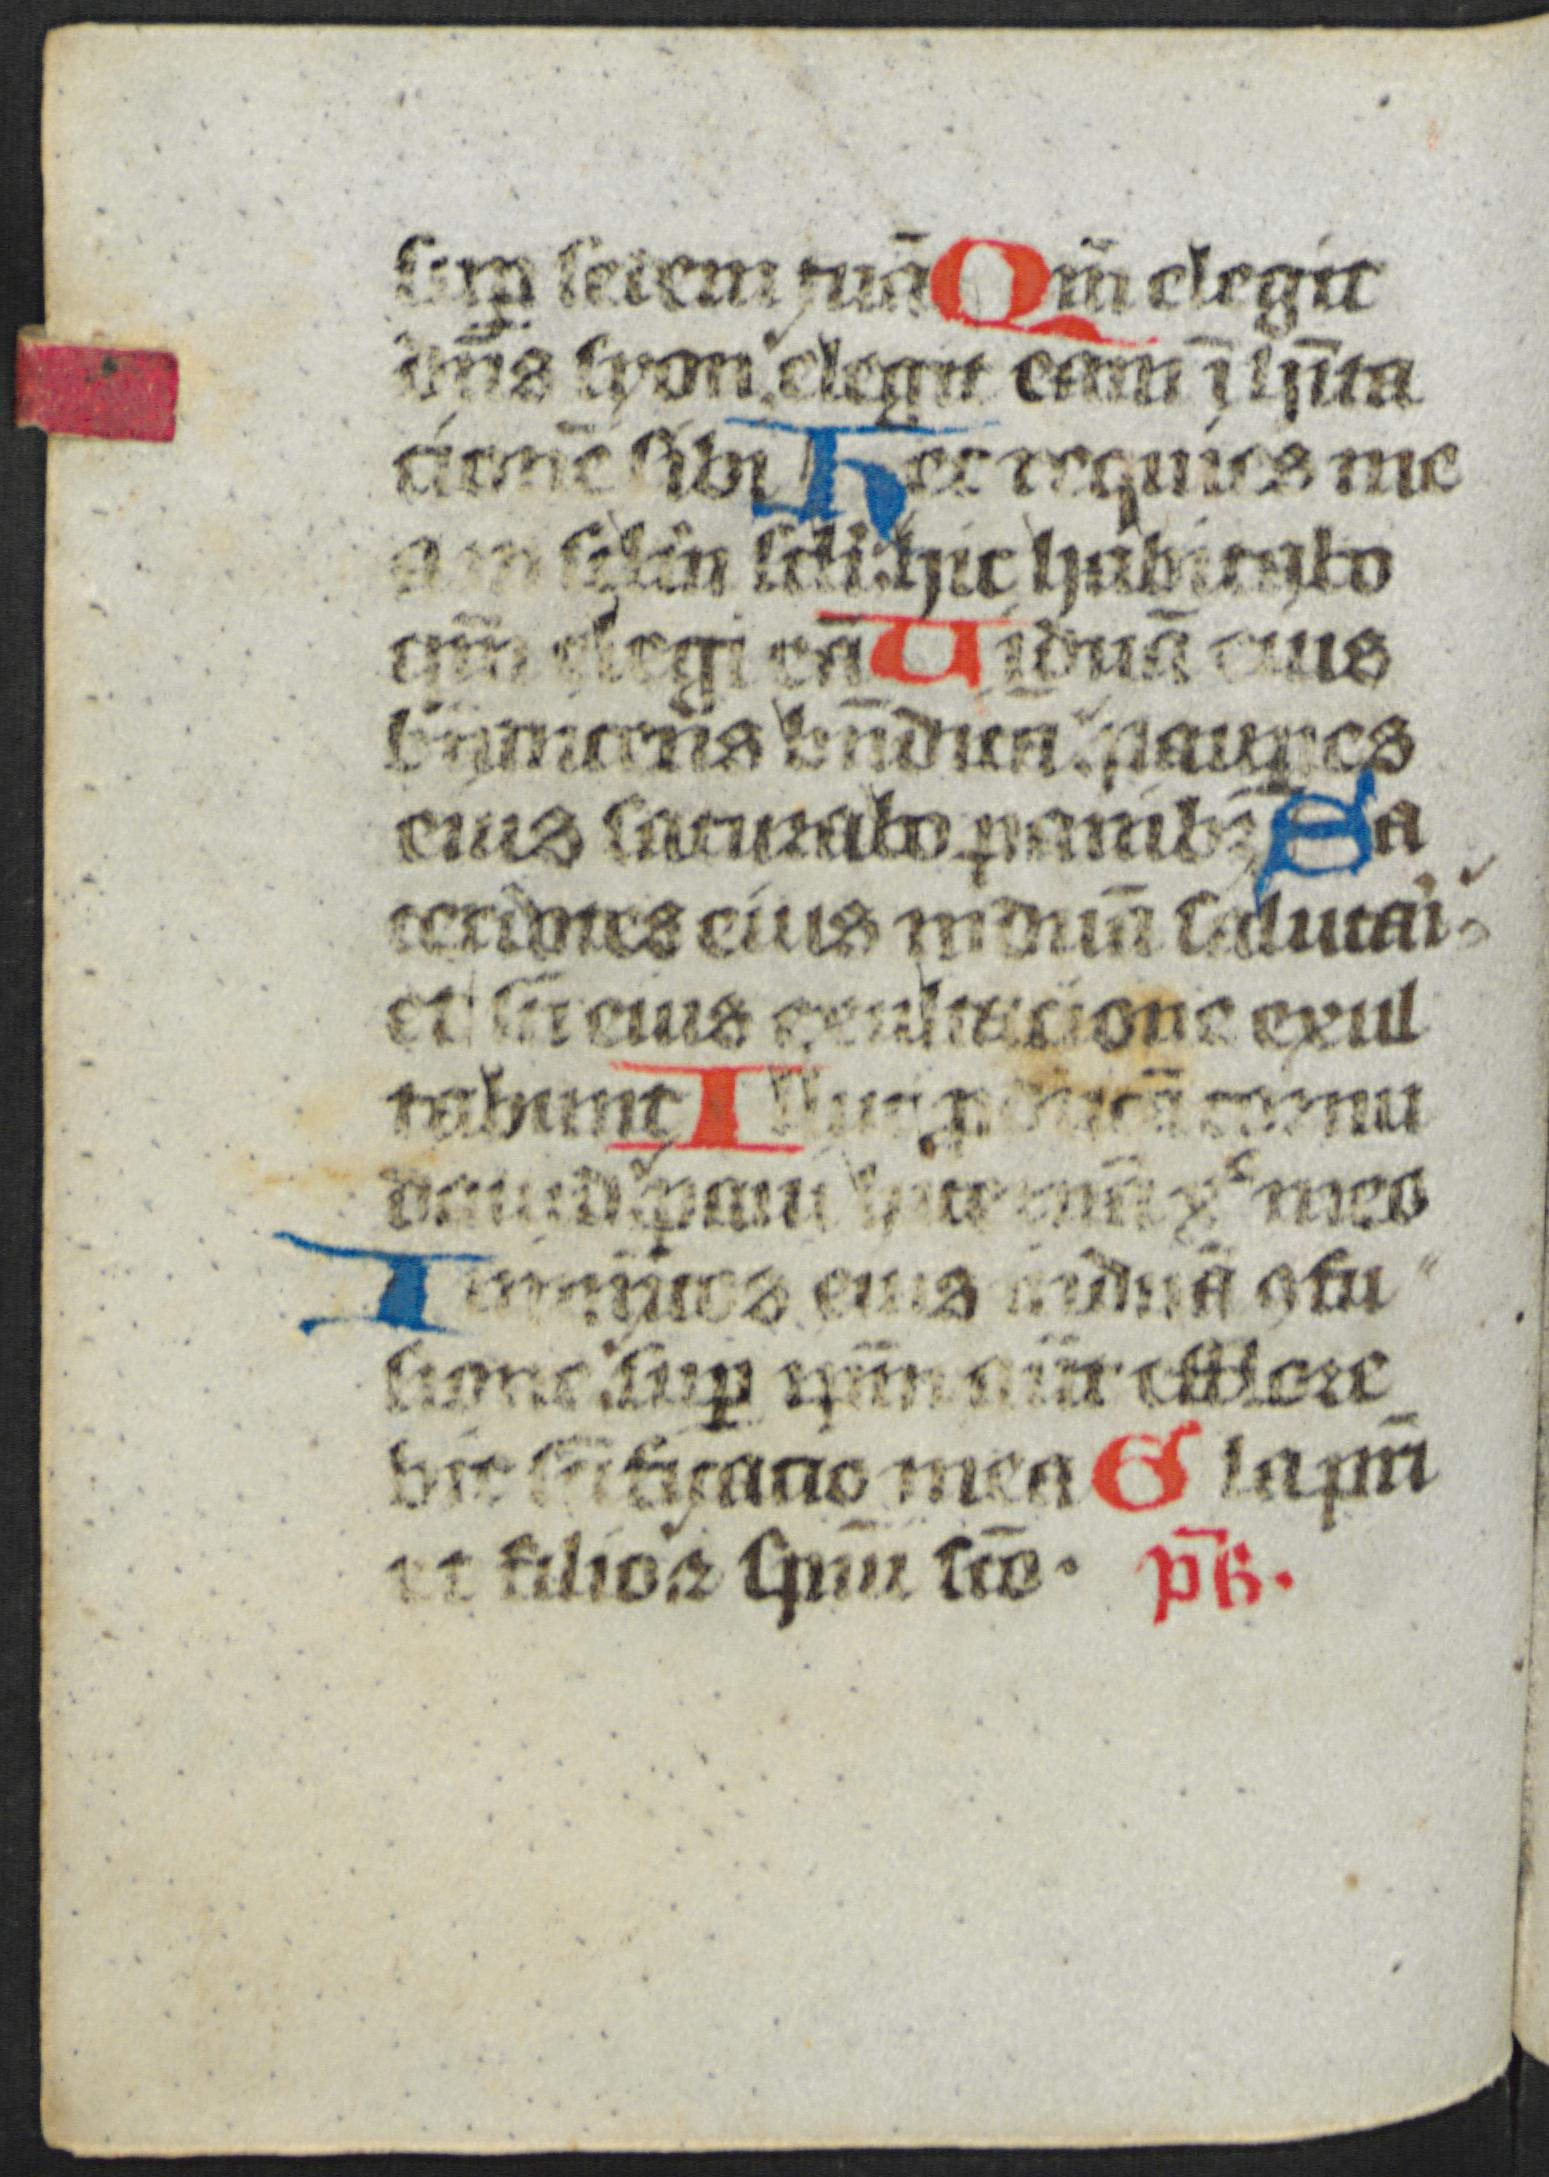 sup̱ sedem tuā Qm̄ elegit
dn̄s syon: elegit eam ī hīta
cionē sibi Hec requies me
a in sclm̄ scli: hic habitabo
qm̄ elegi eā Viduā eius
bn̄dicens bn̄dicā: paup̱es
eius saturabo panibꝫ Sa
cerdotes eius induā salutari:
et sc̄i eius exultacione exul
tabunt Illuc ꝓducā cornu
dauid: paui lucernā xp̄o meo
Inimicos eius induā ꝯfu
sione: sup̱ ip̄m aūt efflore
bit sc̄ificatio mea Gla pr̄i
et filio ⁊ spūi scō. ps̄.